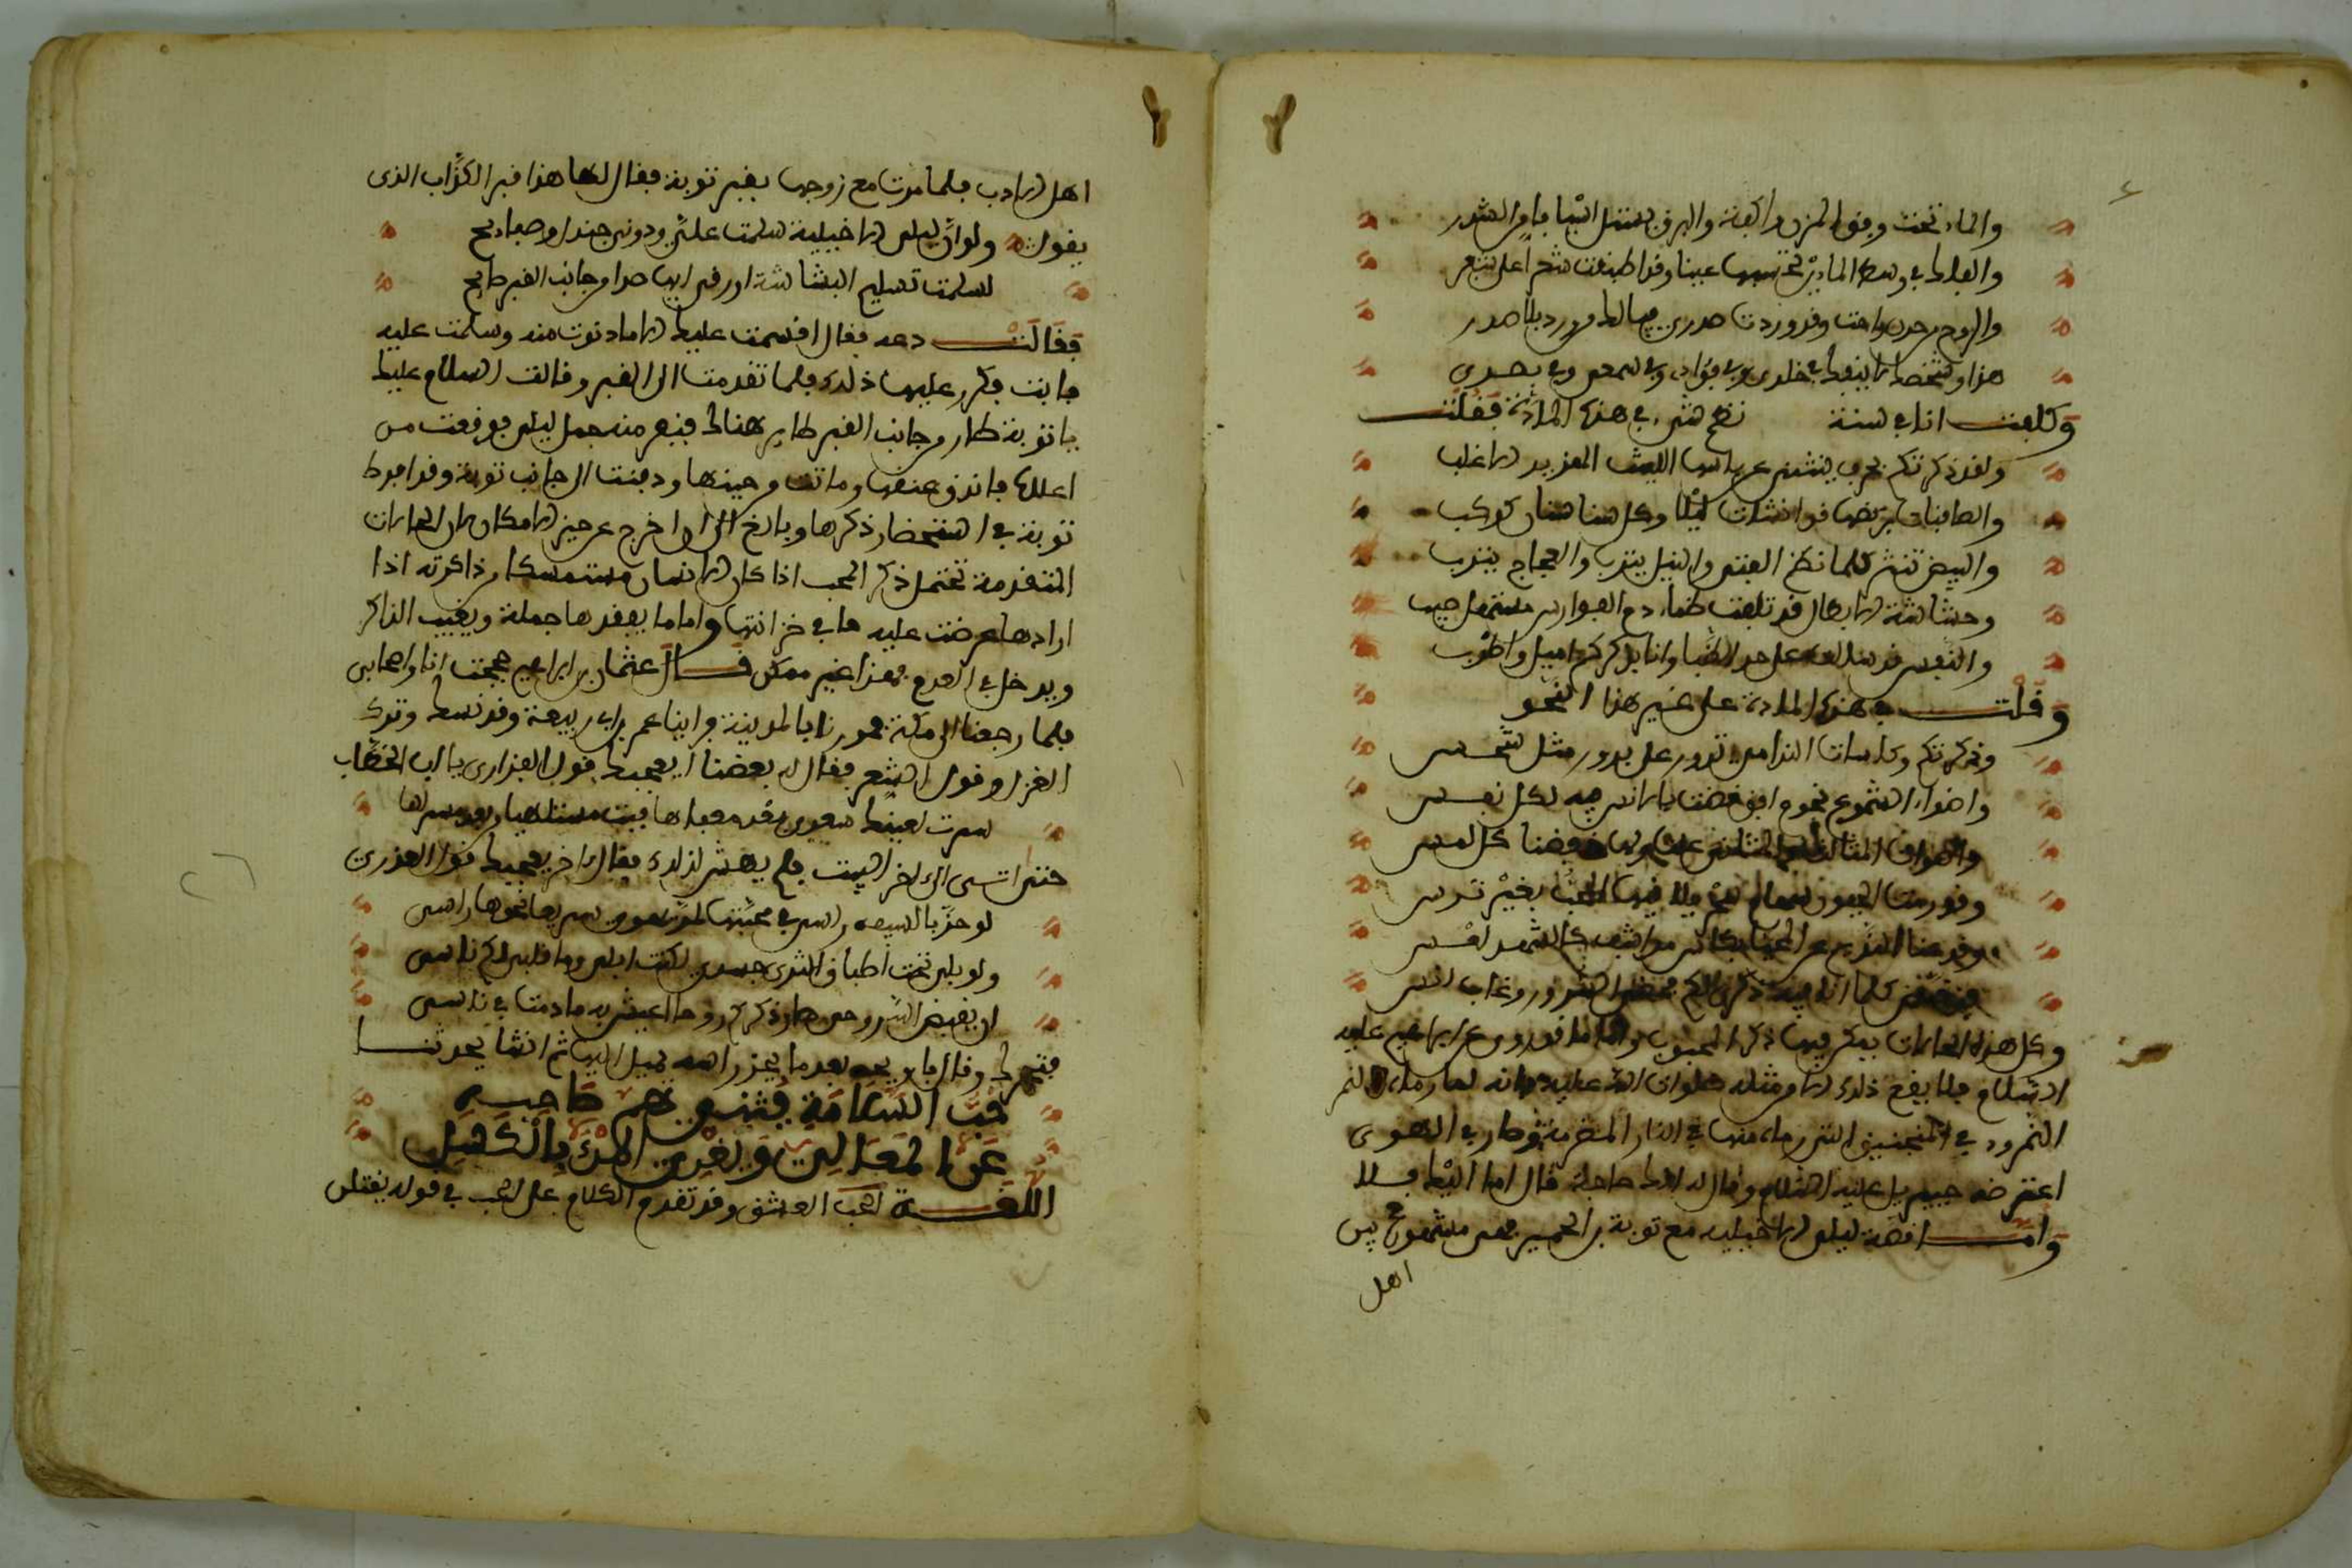 والماء تحت وفوق المزن واكفة والبرق يستل اسيافا من الشرر
والفلك في وسط الماءين تحسبها عينا وقد اطبقت شفرا على شفر
والروح من حزن راحت وقد وردت صدري فيالك من ورد بلا صدر
هذا وشخصك لا ينفك في خلدي وفي فؤادي وفي سمعي وفي بصري
وكلفت انا في سنة نظم شيء في هذه المادة فقلت
ولقد ذكرتكم بحرب ينثني عن باسها الليث الهزبر الاغلب
والصافنات بركضها قد انشات ليلا وكل سنا سنان كوكب
والبيض تنثر كلما نظم القنى والنبل والعجاج يترب
وحشاشة الابطال قد تلفت ظماء ودم الفوارس مستهل صيب
والنفس قد سالت على حد الظبا وانا بذكركم اميل واطرب
وقلت في هذه المادة على غير هذا النحو
وذكرتكم وكاسات الندامى تدور على بدور مثل شمس
واضواء الشموع نجوم افق قضت بالانس فيه لكل نفس
واصوات المثالث كل لمس
وقد رمت العيون سهام
وقد عنا كالشمس لمس
ذكرتكم السرور وغاب انس
وكل هذه الحالات يمكن فيها ذكر المحبوب واما ما قد روي عن ابراهيم عليه
السلام فلا يقع ذلك الا من مثله صلوات الله عليه فانه لما رماه النمر
النمرود في المنجنيق التي رماه منها في النار المضرمة وصار في الهوى
اعترضه جبريل عليه السلام وقال له الك حاجة قال اما اليك فلا
وامـــا قصة ليلى الاخيلية مع توبة بن الحمير فهي مشهورة بين
اهل
اهل الادب فلما مرت مع زوجها بقبر توبة فقال لها هذا قبر الكذاب الذي
يقول ولو ان ليلى الاخيلية سلمت علي ودوني جندل وصفايح
لسلمت تسليم البشاشة او زقى اليها صدا من جانب القبر صايح
فقالت دعه فقال اقسمت عليك الا ما دنوت منه وسلمت عليه
فابت فكرر عليها ذلك فلما تقدمت الى القبر وقالت السلام عليك
يا توبة طار من جانب القبر طاير هناك فنفر منه جمل ليلى فوقعت من
اعلاه فاندق عنقها وماتت من حينها ودفنت الى جانب توبة وقد افرط
توبة في استحضار ذكرها وبالغ الى ان اخرج عن حيز الامكان لان الحالات
المتقدمة تحتمل ذكر المحب اذا كان الانسان مستمسكا من ذاكرته اذا
ارادها عرضت عليه ما في خزانتها واما ما يفقدها جملة ويغيب الذاكر
ويدخل في العدم فهذا غير ممكن قـــال عثمان بن ابراهيم حججت انا واصحابي
فلما رجعنا الى مكة مررنا بالمدينة فراينا عمر بن ابي ربيعة وقد نسك وترك
الغزل وقول الشعر فقال له بعضنا ايعجبك قول الفزاري يا ابا الخطاب
سرت لعينيك سعدى بعد مغفاها فبت مستلهيا من بعد مسراها
حتى انتهى الى اخر البيت فلم يهش لذلك فقال اخر يعجبك قول العذري
لو حز بالسيف راسي في محبتها لمر يهوي سريعا نحوها راسي
ولو بلي تحت اطباق الثرى جسدي لكنت ابلى وما قلبي لكم ناسي
او يقبض الله روحي صار ذكركم روحا اعيش به ما دمت في ناسي
فتحرك وقال يا ويحه بعد ما يحز راسه يميل اليها ثم انشا يحدثنا
حب السلامة يثني هم صاحبه
عن المعالي ويغري المرء بالكسل
اللغــة الحب العشق وقد تقدم الكلام على الحب في قوله يقتلن